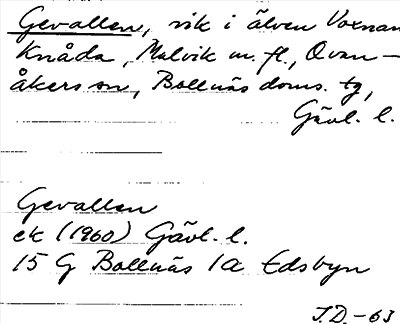 Gevallen, vik i älven Voxnan
Knåda, Malvik m. fl., Ovan-
åkers sn, Bollnäs doms. tg,
Gävl. l.
Gevallen
ek (1960) Gävl. l.
15 G Bollnäs 1a Edsbyn
J.D. - 63